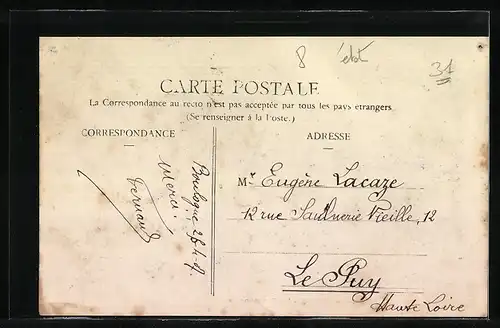 8 état
31
CARTE POSTALE
La Correspondance au recto n'est pas acceptée par tous les pays étrangers
(Se renseigner à la Poste.)
CORRESPONDANCE
ADRESSE
Boulogne
Merci.
Fernand
Mr Eugène Lacaze
12 rue Saulnerie Vieille, 12
Le Puy
Haute Loire